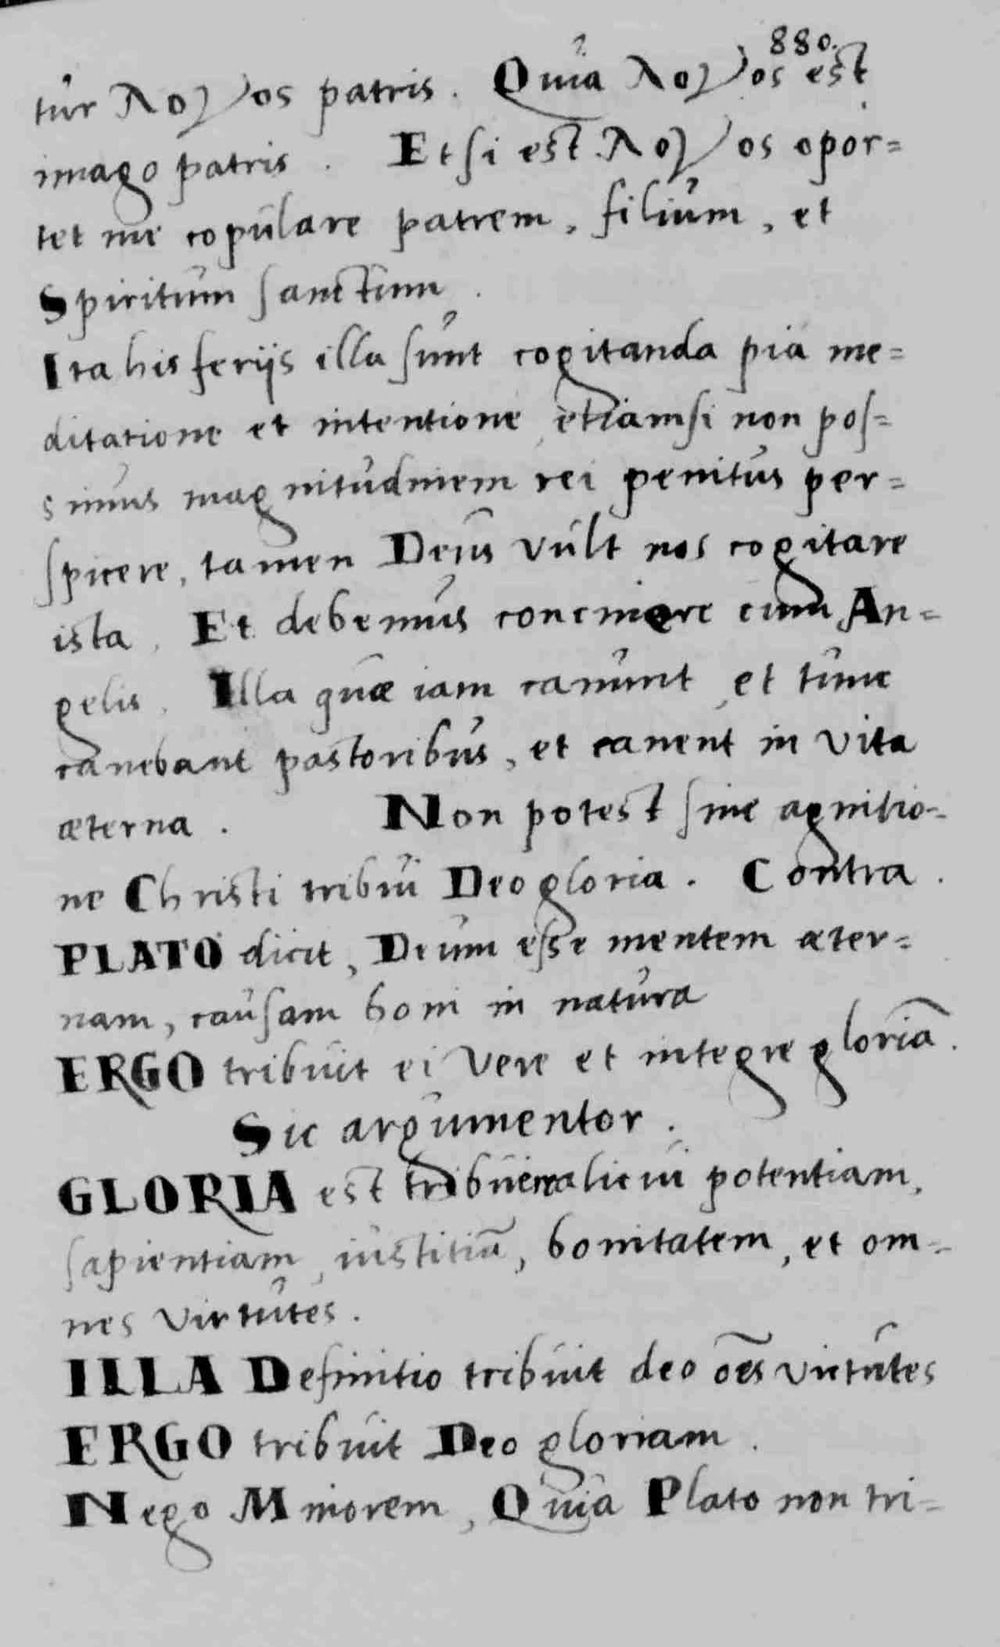 880.
tur λογος patris. Quia λογος est
imago patris. Et si est λογος opor=
tet me copulare patrem, filium, et
Spiritum sanctum.
Ita his ferijs illa sunt cogitanda pia me=
ditatione et intentione, etiamsi non pos=
simus magnitudinem rei penitus per=
spicere, tamen Deus vult nos cogitare
ista. Et debemus concinere cum An=
gelis. Illa quæ iam canunt, et tunc
canebant pastoribus, et canent in vita
æterna. Non potest sine agnitio=
ne Christi tribui Deo gloria. Contra.
PLATO dicit, Deum esse mentem æter=
nam, causam boni in natura
ERGO tribuit ei vere et integre gloriā.
Sic argumentor.
GLORIA est tribuere alicui potentiam,
sapientiam, iustitiā, bonitatem, et om=
nes virtutes.
ILLA Definitio tribuit deo oēs virtutes
ERGO tribuit Deo gloriam.
Nego Minorem, Quia Plato non tri=